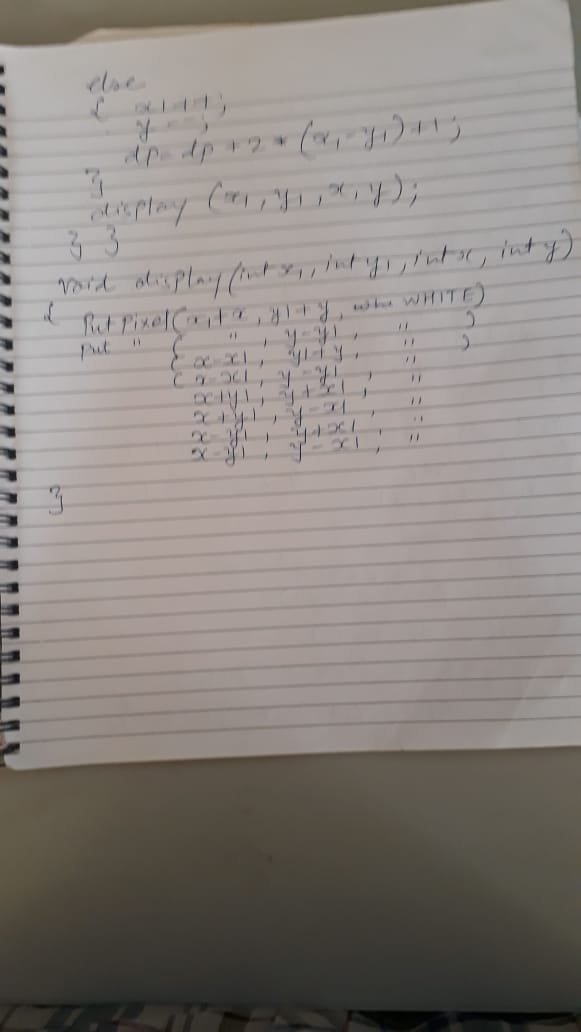 else
{ x1++;
y--;
dp=dp+2*(x1-y1)+1;
}
display (x1, y1, x, y);
} }
void display(int x1, int y1, int x, int y)
{ Putpixel(x1+x, y1+y, WHITE)
put " ( " , y-y1, " )
( x-x1, y1+y, " )
( x-x1, y-y1, "
x+y1, y+x1, "
x+y1, y-x1, "
x-y1, y+x1, "
x-y1, y-x1, "
}